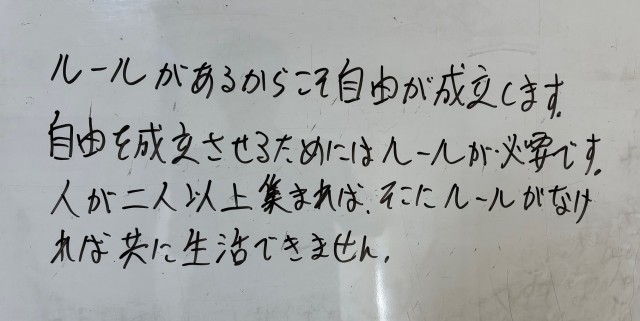 ルールがあるからこそ自由が成立します。
自由を成立させるためにはルールが必要です。
人が二人以上集まれば、そこにルールがなけ
れば共に生活できません。